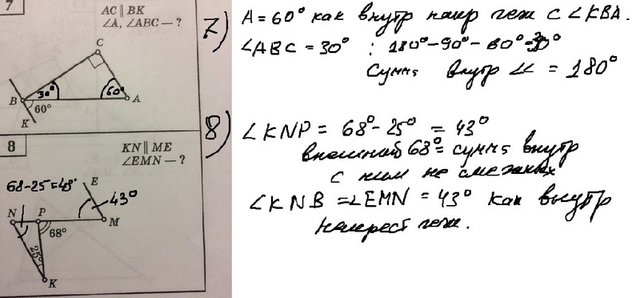 7
AC ∥ BK
∠A, ∠ABC — ?
C
30°
60°
B
60°
A
K
8
KN ∥ ME
∠EMN — ?
68-25=43°
E
43°
N
P
M
68°
25°
K
7) A = 60° как внутр напр леж с ∠KBA.
∠ABC = 30° : 180°-90°-60°=30°
Сумма внутр ∠∠ = 180°
8) ∠KNP = 68°-25° = 43°
внешний 68°= сумма внутр
с ним не смежных
∠KNB = ∠EMN = 43° как внутр
накрест леж.